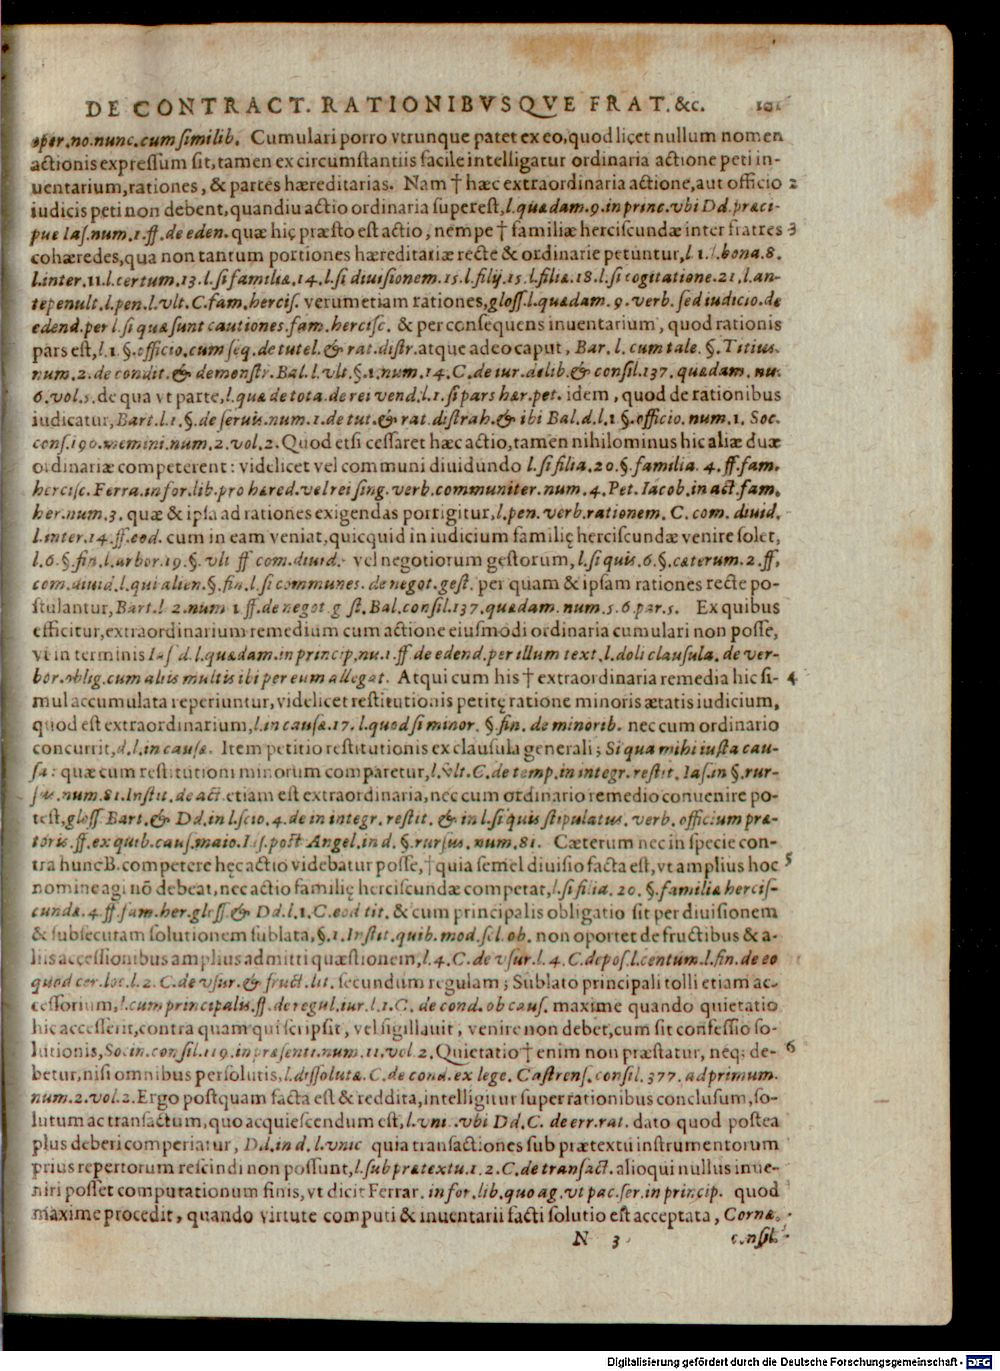 DE CONTRACT. RATIONIBVSQVE FRAT. &c. 101
oper.no.nunc.cum similib. Cumulari porro vtrunque patet ex eo, quod licet nullum nomen
actionis expressum sit, tamen ex circumstantiis facile intelligatur ordinaria actione peti in-
uentarium, rationes, & partes hæreditarias. Nam † hæc extraordinaria actione, aut officio 2
iudicis peti non debent, quandiu actio ordinaria superest, l.quædam.9.in princ.vbi Dd.præci-
pue Ias.num.1.ff.de eden. quæ hic præsto est actio, nempe † familiæ herciscundæ inter fratres 3
cohæredes, qua non tantum portiones hæreditariæ recte & ordinarie petuntur, l 1.l.bona.8.
l.inter.11.l.certum.13.l.si familiæ.14.l.si diuisionem.15.l.filij.15.l.filiæ.18.l.si cogitatione.21.l.an-
tepenult.l.pen.l.vlt.C.fam.hercis. verumetiam rationes, gloss.l.quædam.9.verb.sed iudicio.de
edend.per l.si quæ sunt cautiones.fam.hercisc. & per consequens inuentarium, quod rationis
pars est, l.1.§.officio.cum seq.de tutel.& rat.distr. atque adeo caput, Bar.l.cum tale.§.Titius.
num.2.de condit.& demonstr.Bal.l.vlt.§.1.num.14.C.de iur.delib.& consil.137.quædam.nu.
6.vol.5. de qua vt parte, l.quæ de tota.de rei vend.l.1.si pars hær.pet. idem, quod de rationibus
iudicatur, Bart.l.1.§.de seruis.num.1.de tut.& rat.distrah.& ibi Bal.d.l.1 §.officio.num.1. Soc.
cons.190.memini.num.2.vol.2. Quod etsi cessaret hæc actio, tamen nihilominus hic aliæ duæ
ordinariæ competerent: videlicet vel communi diuidundo l.si filia.20.§.familiæ.4.ff.fam.
hercisc.Ferra.in for.lib.pro hæred.vel rei sing.verb.communiter.num.4.Pet.Iacob.in act.fam.
her.num.3. quæ & ipsa ad rationes exigendas porrigitur, l.pen.verb.rationem.C.com.diuid.
l.inter.14.ff.eod. cum in eam veniat, quicquid in iudicium familię herciscundæ venire solet,
l.6.§.fin.l.arbor.19.§.vlt ff com.diuid. vel negotiorum gestorum, l.si quis.6.§.cæterum.2.ff.
com.diuid.l.qui alien.§.fin.l.si communes.de negot.gest. per quam & ipsam rationes recte po-
stulantur, Bart.l 2.num 1 ff.de negot.g st.Bal.consil.137.quædam.num.5.6 par.5. Ex quibus
efficitur, extraordinarium remedium cum actione eiusmodi ordinaria cumulari non posse,
vt in terminis Ias d.l.quædam.in princip,nu.1.ff de edend.per illum text.l.doli clausula.de ver-
bor.oblig.cum aliis multis ibi per eum allegat. Atqui cum his † extraordinaria remedia hic si- 4
mul accumulata reperiuntur, videlicet restitutionis petitę ratione minoris ætatis iudicium,
quod est extraordinarium, l.in causæ.17.l.quod si minor.§.fin.de minorib. nec cum ordinario
concurrit, d.l.in causæ. Item petitio restitutionis ex clausula generali; Si qua mihi iusta cau-
sa: quæ cum restitutioni minorum comparetur, l.vlt.C.de temp.in integr.restit.Ias.in §.rur-
sus.num.81.Instit.de act. etiam est extraordinaria, nec cum ordinario remedio conuenire po-
test, gloss Bart.& Dd.in l.scio.4.de in integr.restit.& in l.si quis stipulatus.verb.officium præ-
toris.ff.ex quib.caus.maio.Ias.post Angel.in d.§.rursus.num.81. Cæterum nec in specie con-
tra hunc B. competere hęc actio videbatur posse, † quia semel diuisio facta est, vt amplius hoc 5
nomine agi nõ debeat, nec actio familię herciscundæ competat, l.si filia.20.§.familiæ hercis-
cundæ.4.ff.fam.her.gloss & Dd.l.1.C.eod tit. & cum principalis obligatio sit per diuisionem
& subsecutam solutionem sublata, §.1.Instit.quib.mod.tol.ob. non oportet de fructibus & a-
liis accessionibus amplius admitti quæstionem, l.4.C.de vsur.l.4.C.depos.l.centum.l.fin.de eo
quod cer.loc.l.2.C.de vsur.& fruct.lit. secundum regulam; Sublato principali tolli etiam ac-
cessorium, l.cum principalis.ff.de regul.iur.l.1.C.de cond.ob caus. maxime quando quietatio
hic accesserit, contra quam qui scripsit, vel sigillauit, venire non debet, cum sit confessio so-
lutionis, Socin.consil.119.in præsenti.num.11.vol 2. Quietatio † enim non præstatur, neq; de- 6
betur, nisi omnibus persolutis, l.dissoluta.C.de cond.ex lege.Castrens.consil.377.ad primum.
num.2.vol.2. Ergo postquam facta est & reddita, intelligitur super rationibus conclusum, so-
lutum ac transactum, quo acquiescendum est, l.vni.vbi Dd.C.de err.rat. dato quod postea
plus deberi comperiatur, Dd.in d.l.vnic quia transactiones sub prætextu instrumentorum
prius repertorum rescindi non possunt, l.sub prætextu.1.2.C.de transact. alioqui nullus inue-
niri posset computationum finis, vt dicit Ferrar.in for.lib.quo ag.vt pac.ser.in princip. quod
maxime procedit, quando virtute computi & inuentarii facti solutio est acceptata, Cornæ.
N 3 consil.
Digitalisierung gefördert durch die Deutsche Forschungsgemeinschaft - DFG